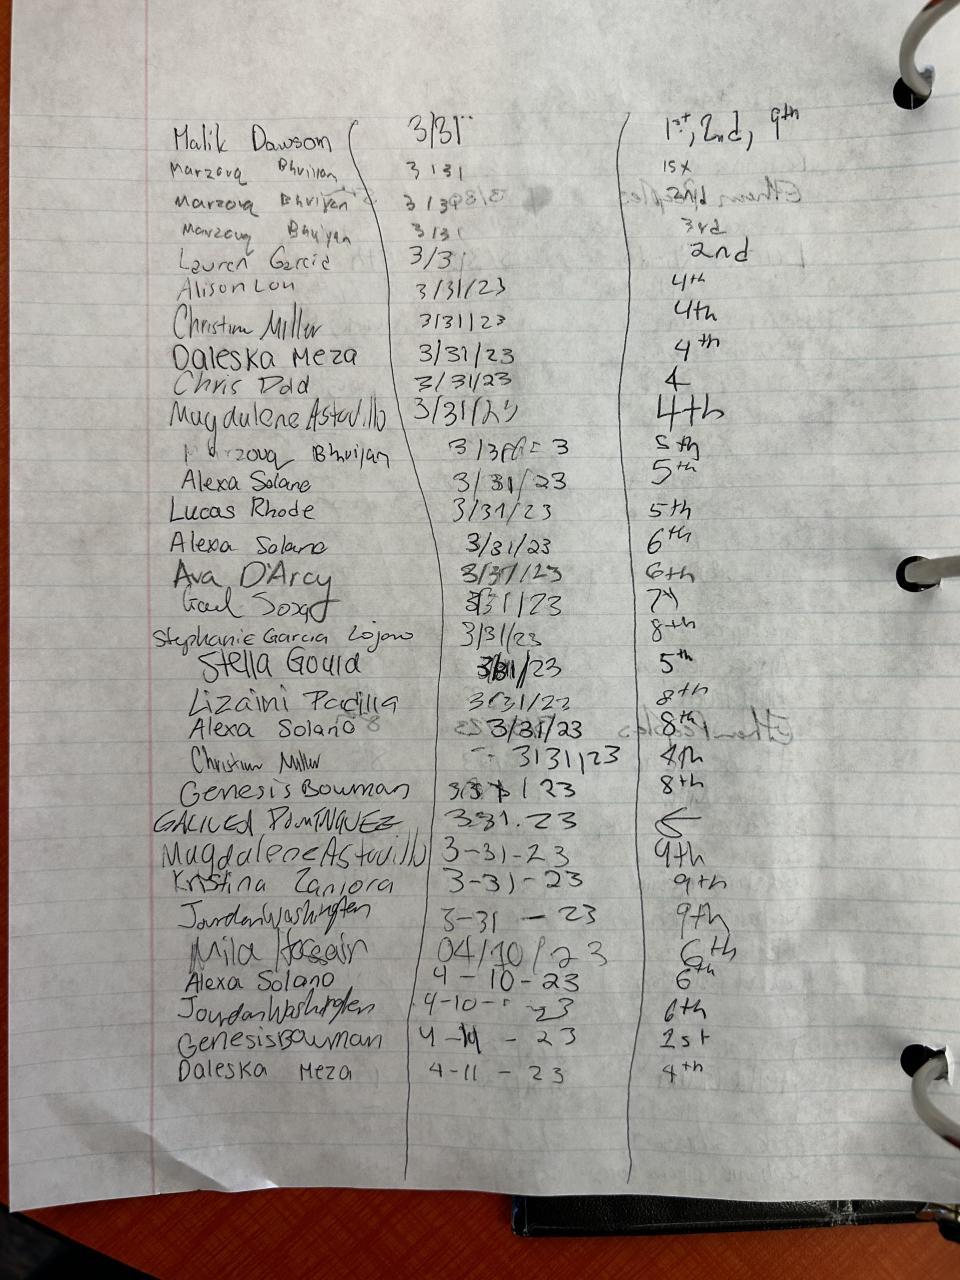 Malik Dawson 3/31 1st, 2nd, 9th
Marzouq Bhuiyan 3/31 1st
Marzouq Bhuiyan 3/3 2nd
Marzouq Bhuiyan 3/31 3rd
Lauren Garcia 3/31 2nd
Alison Lou 3/31/23 4th
Christian Miller 3/31/23 4th
Daleska Meza 3/31/23 4th
Chris Dodd 3/31/23 4
Magdalene Astudillo 3/31/23 4th
Marzouq Bhuiyan 5th
Alexa Solano 3/31/23 5th
Lucas Rhode 3/31/23 5th
Alexa Solano 3/31/23 6th
Ava D'Arcy 3/31/23 6th
Gael 3/31/23
Stephanie Garcia Lojano 3/31/23 8th
Stella Gould 3/31/23 5th
Lizaini Padilla 3/31/23 8th
Alexa Solano 3/31/23 8th
Christian Miller 3/31/23 4th
Genesis Bowman 23 8th
GALILEA DOMINQUEZ 331.23
Magdalene Astudillo 3-31-23 9th
Kristina Zamora 3-31-23 9th
Jourdan Washington 3-31-23 9th
Mila Hossain 04/10/23 6th
Alexa Solano 4-10-23 6th
Jourdan Washington 4-10-23 6th
Genesis Bowman 4-11-23 1st
Daleska Meza 4-11-23 4th